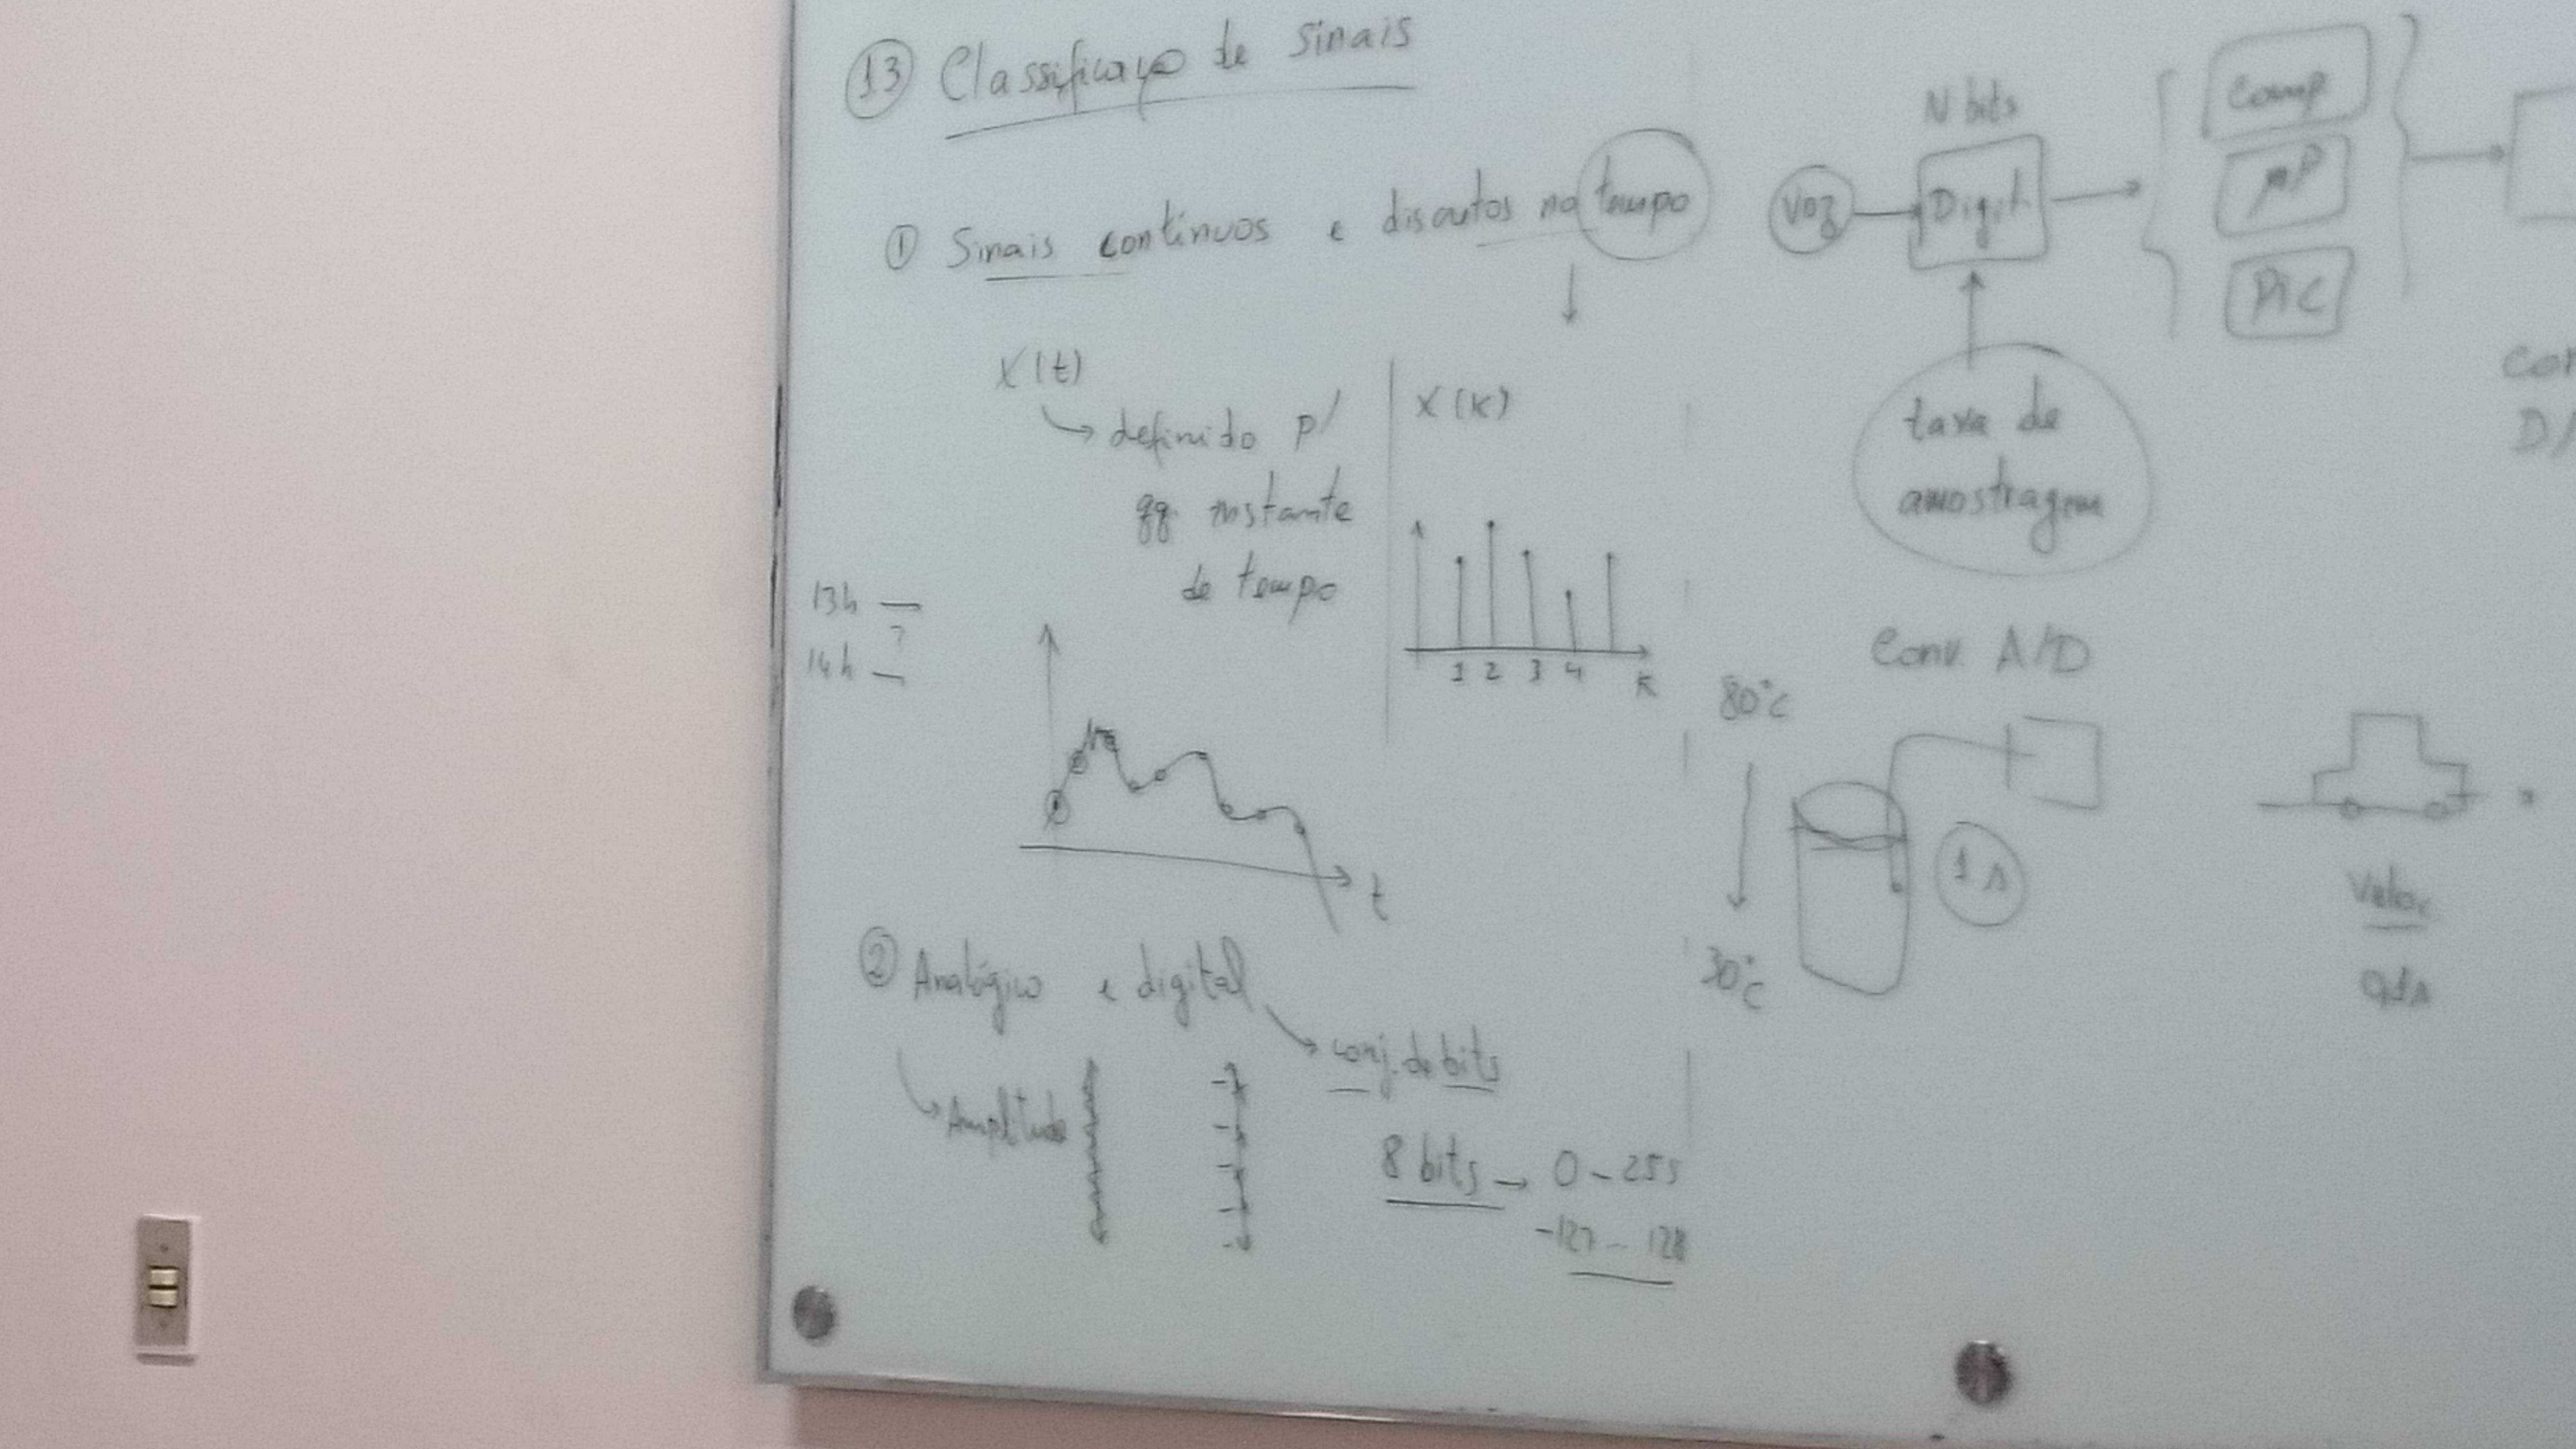 13 Classificação de Sinais
1 Sinais contínuos e discretos no tempo
X(t)
definido p/
qq. instante
de tempo
X(k)
1 2 3 4 k
13h —
?
14h —
t
2 Analógico e digital
Amplitude
conj. de bits
8 bits → 0 – 255
-127 – 128
N bits
Voz
Digit.
Comp
μP
PIC
taxa de
amostragem
Conv. A/D
80°C
30°C
1 s
Veloc
0,1s
D/